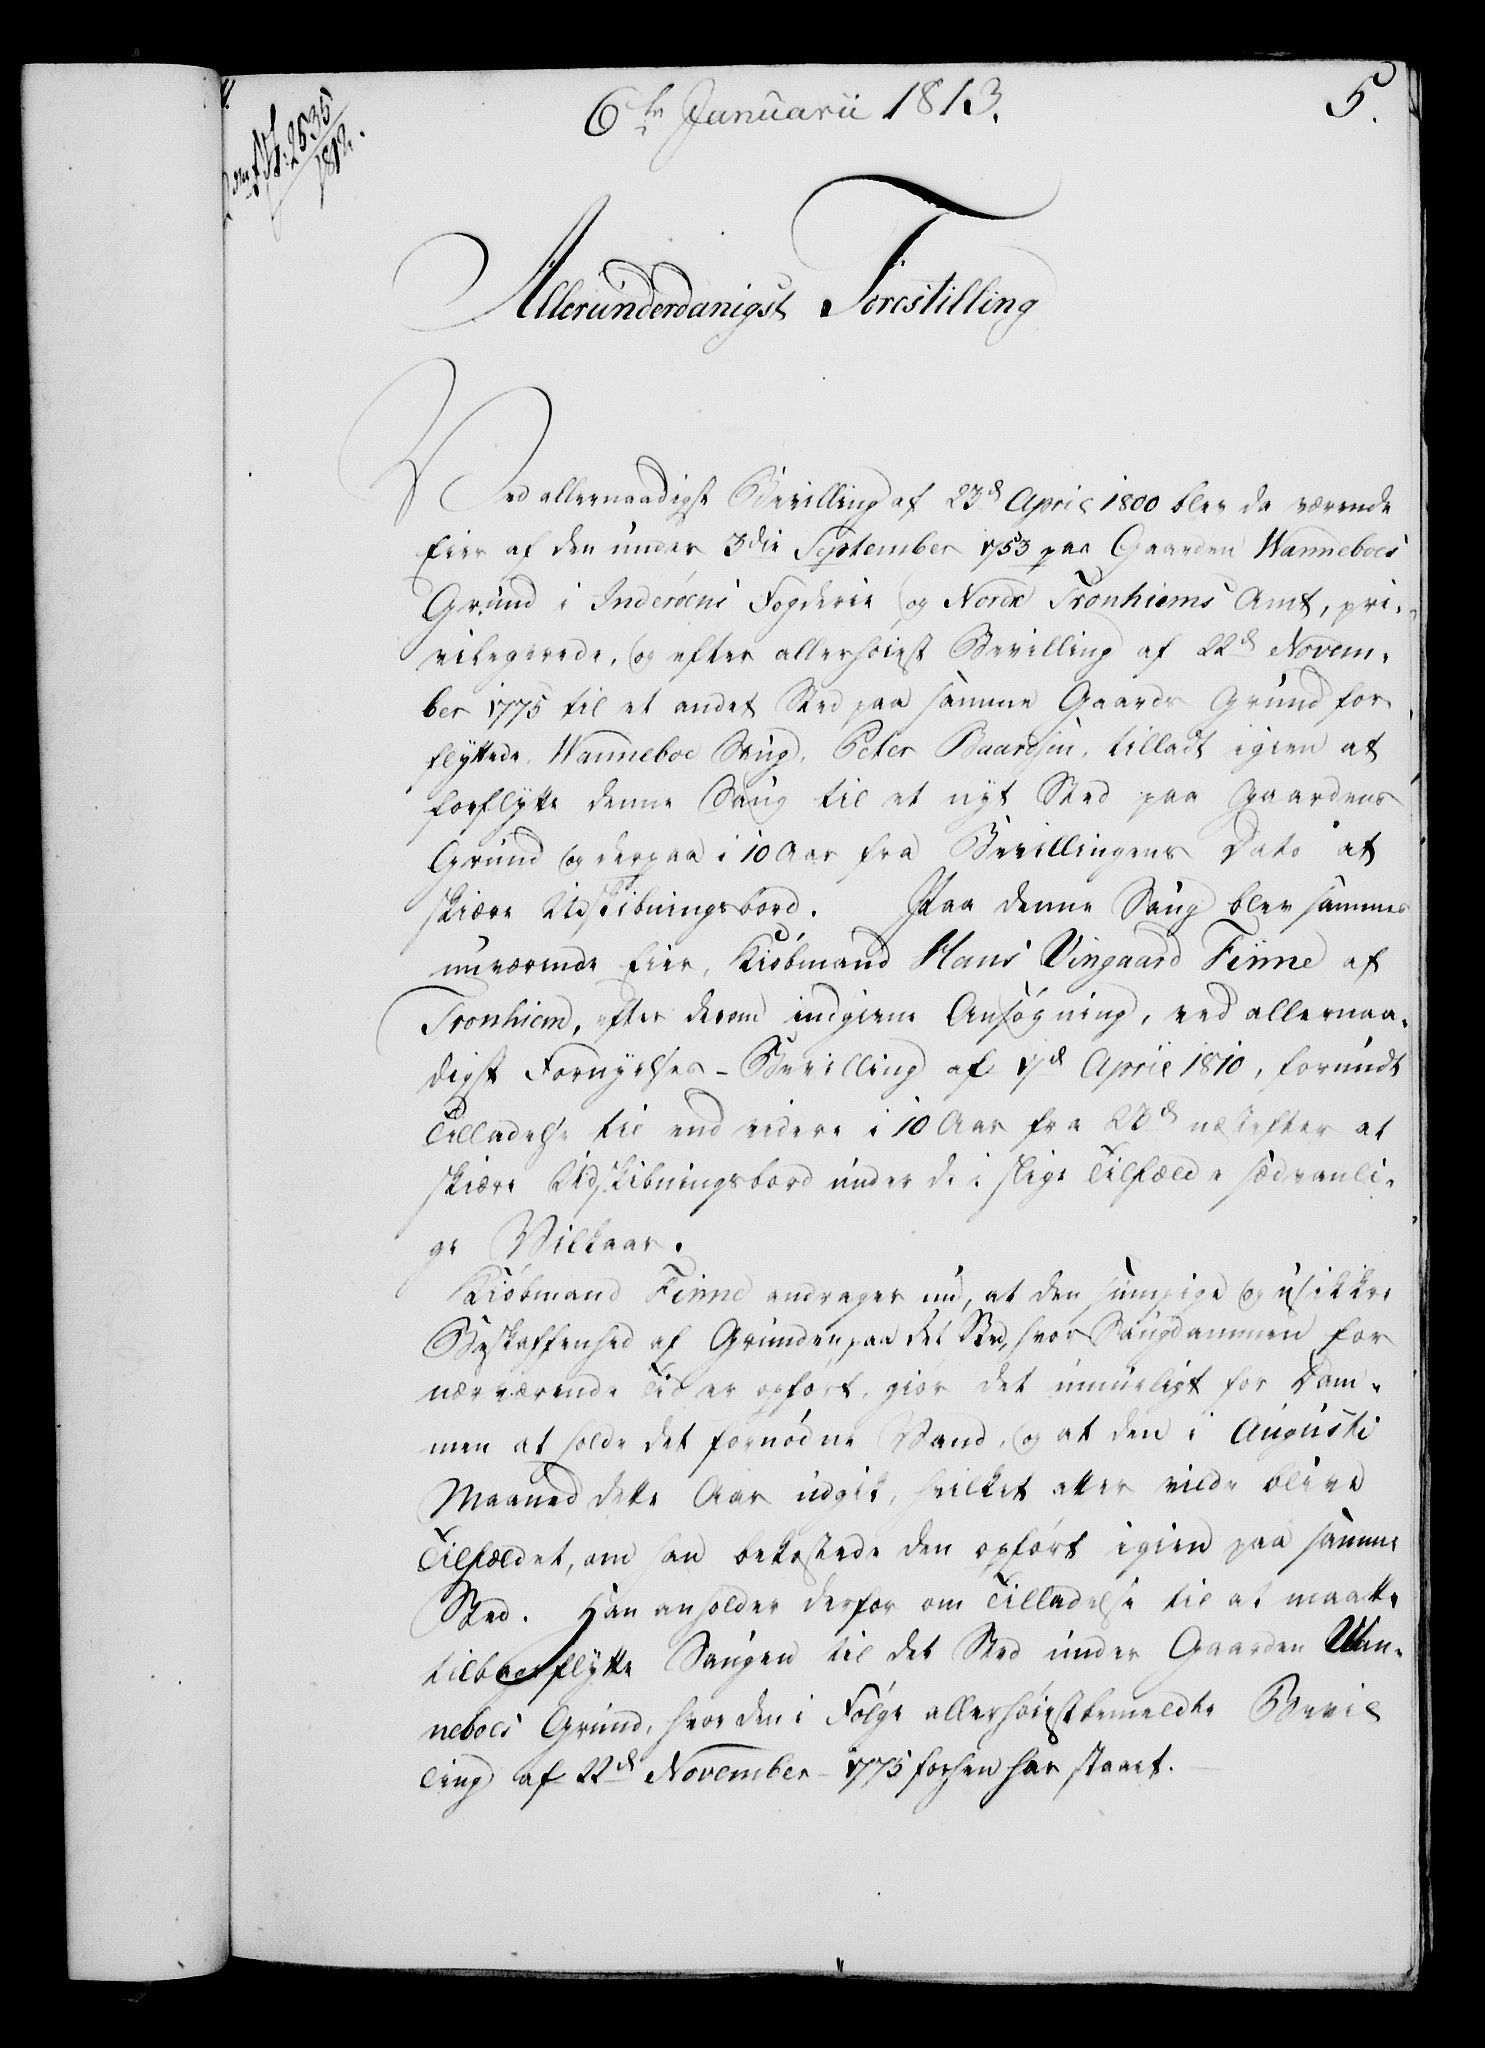 6te Januarii 1813.
5.
No 2535
1812.
Allerunderdanigst Forestilling
Ved allernaadigst Bevilling af 23de April 1800 blev da værende
Eier af den under 3die September 1753 paa Gaarden Wanneboes
Grund i Inderöens Fogderie og Nordre Tronhiems Amt, pri-
vilegerede, og efter allerhöiest Bevilling af 22de Novem-
ber 1775 til et andet Sted paa samme Gaards Grund for
flyttede Wanneboe Saug, Peter Baardsen, tilladt igien at
forflytte denne Saug til et nyt Sted paa Gaardens
Grund og derpaa i 10 Aar fra Bevillingens Dato at
skiære Udskibningsbord. Paa denne Saug blev sammes
nuværende Eier, Kiöbmand Hans Vingaard Finne af
Tronhiem, efter derom indgiven Ansögning, ved allernaa-
digst Fornyelses-Bevilling af 17de April 1810, forundt
Tilladelse til end videre i 10 Aar fra 23de næstefter at
skiære Udskibningsbord under de i slige Tilfælde sædvanli-
ge Vilkaar.
Kiöbmand Finne andrager nu, at den sumpige og usikkre
Beskaffenhed af Grunden paa det Sted, hvor Saugdammen for
nærværende Tid er opfört, giör det umueligt for Dam-
men at holde det fornödne Vand, og at den i Augusti
Maaned dette Aar udgik, hvilket atter vilde blive
Tilfældet, om han bekostede den opfört igien paa samme
Sted. Han anholder derfor om Tilladelse til at maatte
tilbageflytte Saugen til det Sted under Gaarden Wan-
neboes Grund, hvor den i Fölge allerhöiestbemeldte Bevil
ling af 22de November 1775 forhen har staaet.